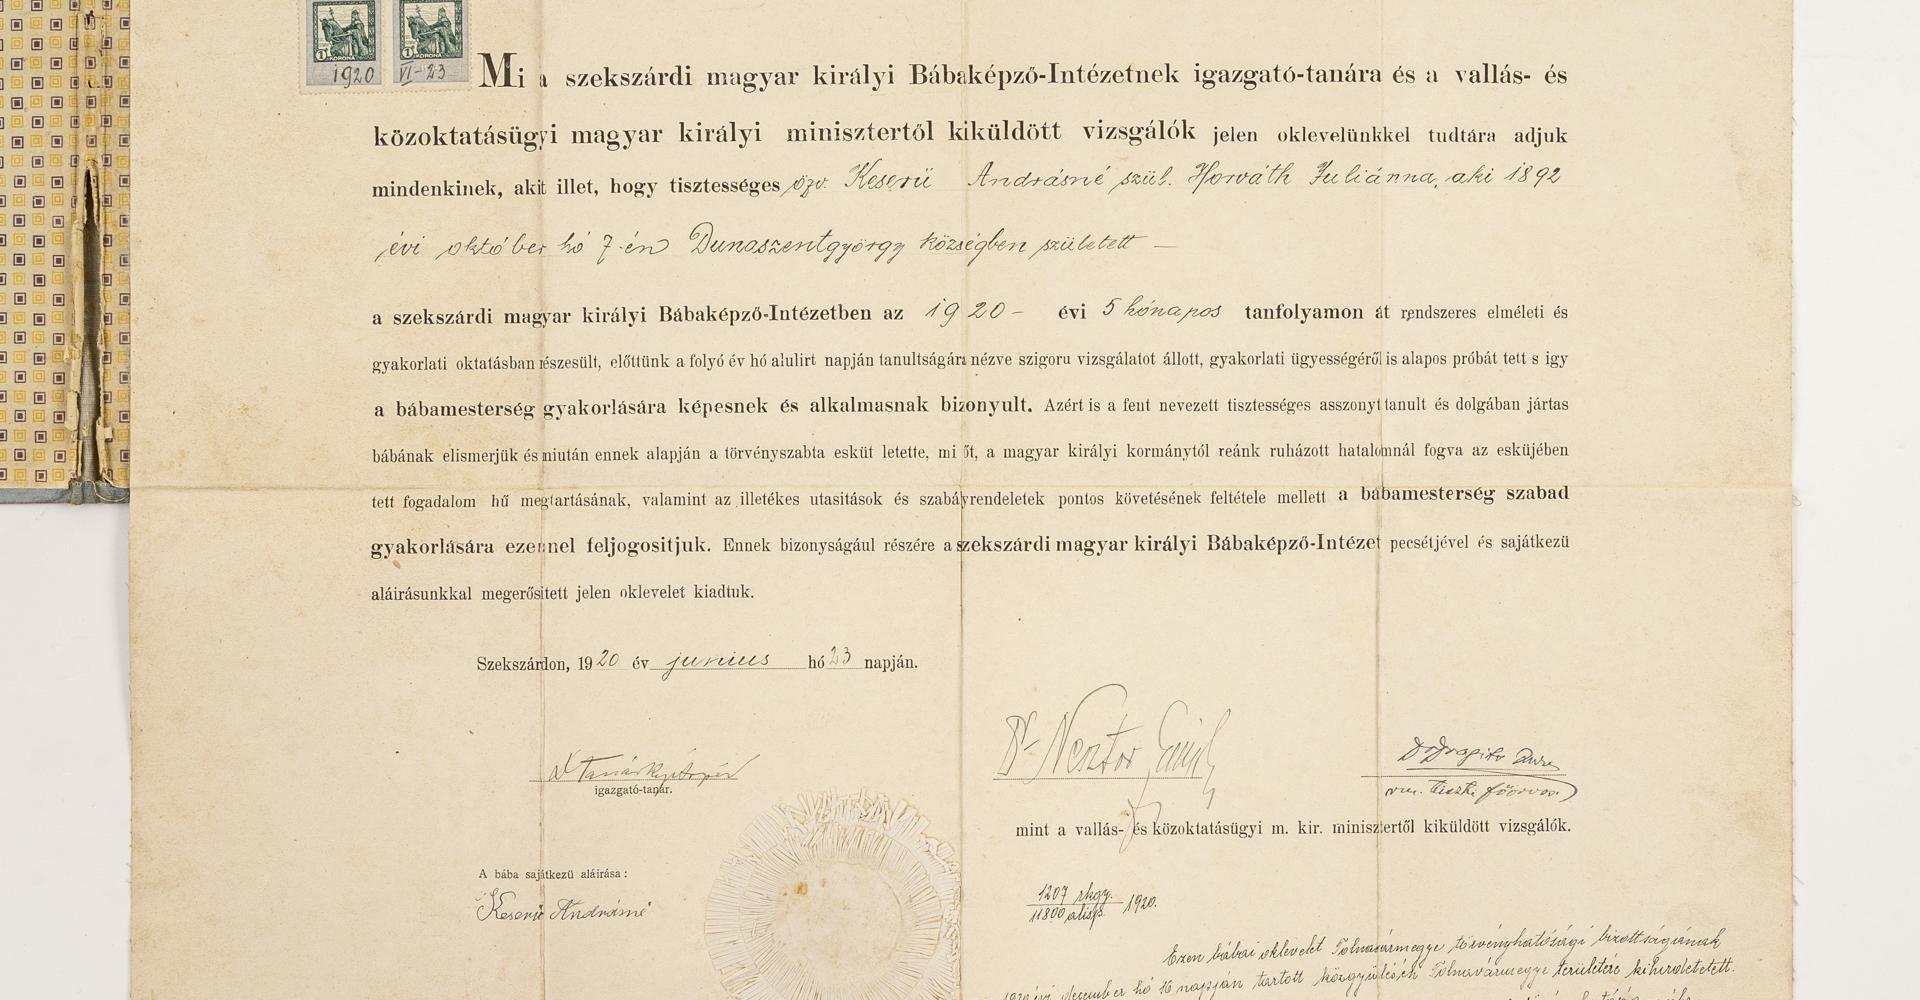 1 KORONA 1 KORONA
1920 VI-23
Mi a szekszárdi magyar királyi Bábaképző-Intézetnek igazgató-tanára és a vallás- és
közoktatásügyi magyar királyi minisztertől kiküldött vizsgálók jelen oklevelünkkel tudtára adjuk
mindenkinek, akit illet, hogy tisztességes özv. Keserü Andrásné szül. Horváth Juliánna, aki 1892
évi október hó 7-én Dunaszentgyörgy községben született —
a szekszárdi magyar királyi Bábaképző-Intézetben az 1920 - évi 5 hónapos tanfolyamon át rendszeres elméleti és
gyakorlati oktatásban részesült, előttünk a folyó év hó alulirt napján tanultságára nézve szigoru vizsgálatot állott, gyakorlati ügyességéről is alapos próbát tett s igy
a bábamesterség gyakorlására képesnek és alkalmasnak bizonyult. Azért is a fent nevezett tisztességes asszonyt tanult és dolgában jártas
bábának elismerjük és miután ennek alapján a törvényszabta esküt letette, mi őt, a magyar királyi kormánytól reánk ruházott hatalomnál fogva az esküjében
tett fogadalom hű megtartásának, valamint az illetékes utasitások és szabályrendeletek pontos követésének feltétele mellett a bábamesterség szabad
gyakorlására ezennel feljogositjuk. Ennek bizonyságául részére a szekszárdi magyar királyi Bábaképző-Intézet pecsétjével és sajátkezü
aláirásunkkal megerősitett jelen oklevelet kiadtuk.
Szekszárdon, 1920 év junius hó 23 napján.
Dr Nesztor Emil
igazgató-tanár.
főorvos
mint a vallás- és közoktatásügyi m. kir. minisztertől kiküldött vizsgálók.
A bába sajátkezü aláirása:
Keserü Andrásné
1207 rkgy.
11800 alisp. 1920.
Ezen bábai oklevelet Tolnavármegye törvényhatósági bizottságának
1920 évi december hó 16 napján tartott közgyülésén Tolnavármegye területére kihirdetetett.